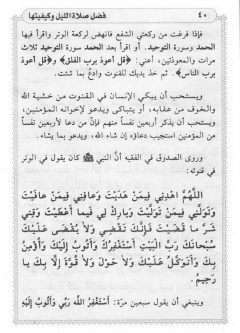 ٤٠ فضل صلاة الليل وكيفيتها
فإذا فرغت من ركعتي الشفع فانهض لركعة الوتر واقرأ فيها
الحمد وسورة التوحيد. أو اقرأ بعد الحمد سورة التوحيد ثلاث
مرات والمعوذتين، أعني: ﴿قل أعوذ برب الفلق﴾ و﴿قل أعوذ
برب الناس﴾. ثم خذ يديك للقنوت وادع بما شئت.
ويستحب أن يبكي الإنسان في القنوت من خشية الله
والخوف من عقابه، أو يتباكى ويدعو لإخوانه المؤمنين.
ويستحب أن يذكر أربعين نفساً منهم فإن من دعا لأربعين نفساً
من المؤمنين استجيب دعاؤه إن شاء الله، ويدعو بما يشاء.
وروى الصدوق في الفقيه أن النبي ﷺ كان يقول في الوتر
في قنوته:
اللَّهُمَّ اهْدِنِي فِيمَنْ هَدَيْتَ وَعَافِنِي فِيمَنْ عَافَيْتَ
وَتَوَلَّنِي فِيمَنْ تَوَلَّيْتَ وَبَارِكْ لِي فِيمَا أَعْطَيْتَ وَقِنِي
شَرَّ مَا قَضَيْتَ فَإِنَّكَ تَقْضِي وَلَا يُقْضَى عَلَيْكَ
سُبْحَانَكَ رَبَّ الْبَيْتِ أَسْتَغْفِرُكَ وَأَتُوبُ إِلَيْكَ وَأُؤْمِنُ
بِكَ وَأَتَوَكَّلُ عَلَيْكَ وَلَا حَوْلَ وَلَا قُوَّةَ إِلَّا بِكَ يَا
رَحِيمُ.
وينبغي أن يقول سبعين مرّة: أَسْتَغْفِرُ اللَّهَ رَبِّي وَأَتُوبُ إِلَيْهِ